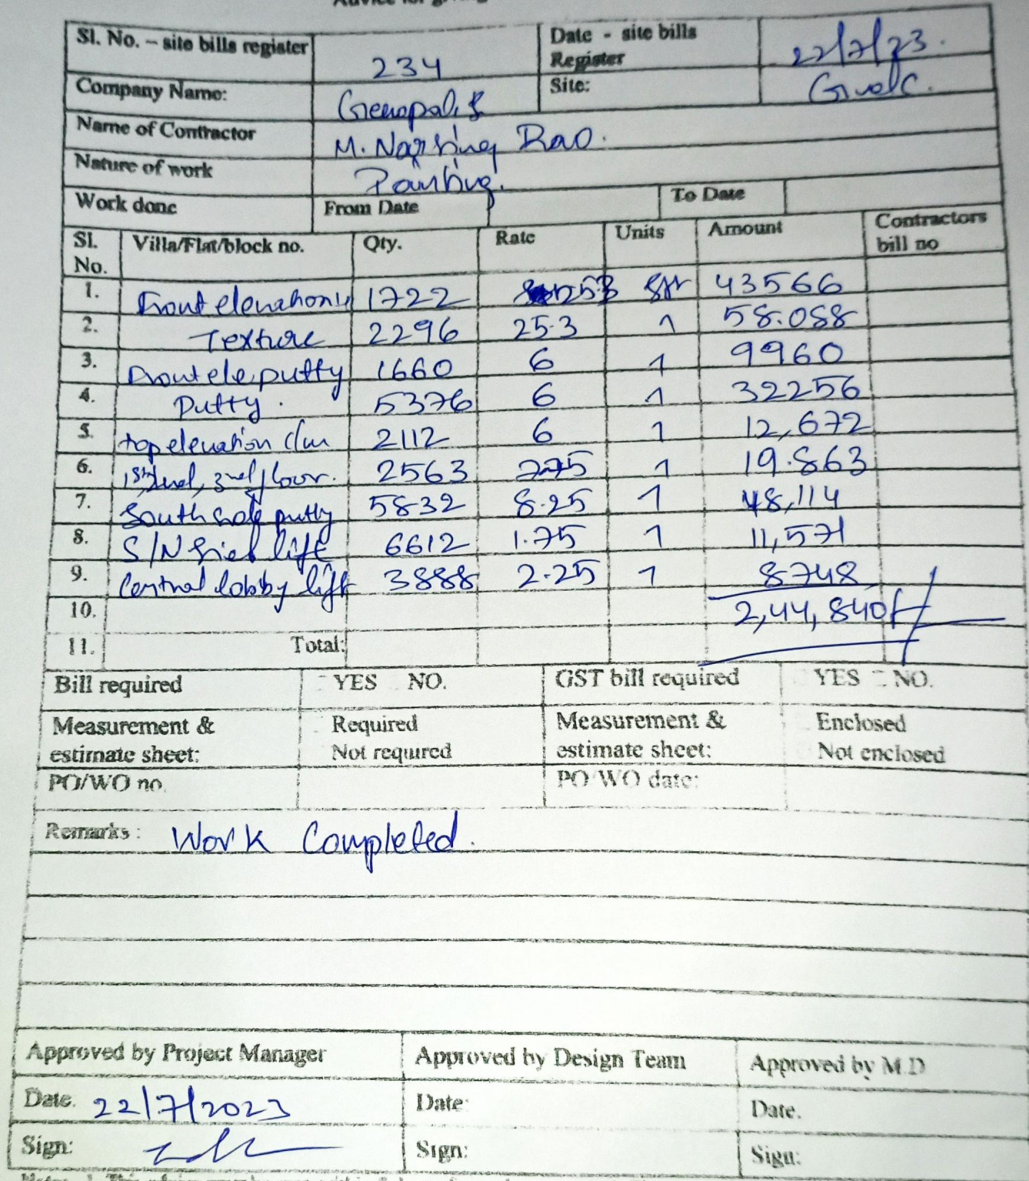 Sl. No. – site bills register 234 Date - site bills Register 22/7/23.
Company Name: Genopolis Site: GVDC.
Name of Contractor M. Narsing Rao.
Nature of work Painting.
Work done From Date To Date
Sl. No. Villa/Flat/block no. Qty. Rate Units Amount Contractors bill no
1. Front elevation 1722 253 sft 43566
2. Texture 2296 25.3 " 58.088
3. Front ele putty 1660 6 " 9960
4. Putty. 5376 6 " 32256
5. top elevation 2112 6 " 12,672
6. 1st, 2nd, 3rd floor. 2563 775 " 19.863
7. South side putty 5832 8.25 " 48,114
8. S/N lift 6612 1.75 " 11,571
9. Central lobby lift 3888 2.25 " 8748
10. 2,44,840/-
11. Total:
Bill required YES NO. GST bill required YES NO.
Measurement & estimate sheet: Required Not required Measurement & estimate sheet: Enclosed Not enclosed
PO/WO no. PO/WO date:
Remarks: Work Completed.
Approved by Project Manager Approved by Design Team Approved by M.D
Date. 22/7/2023 Date: Date.
Sign: Sign: Sign: